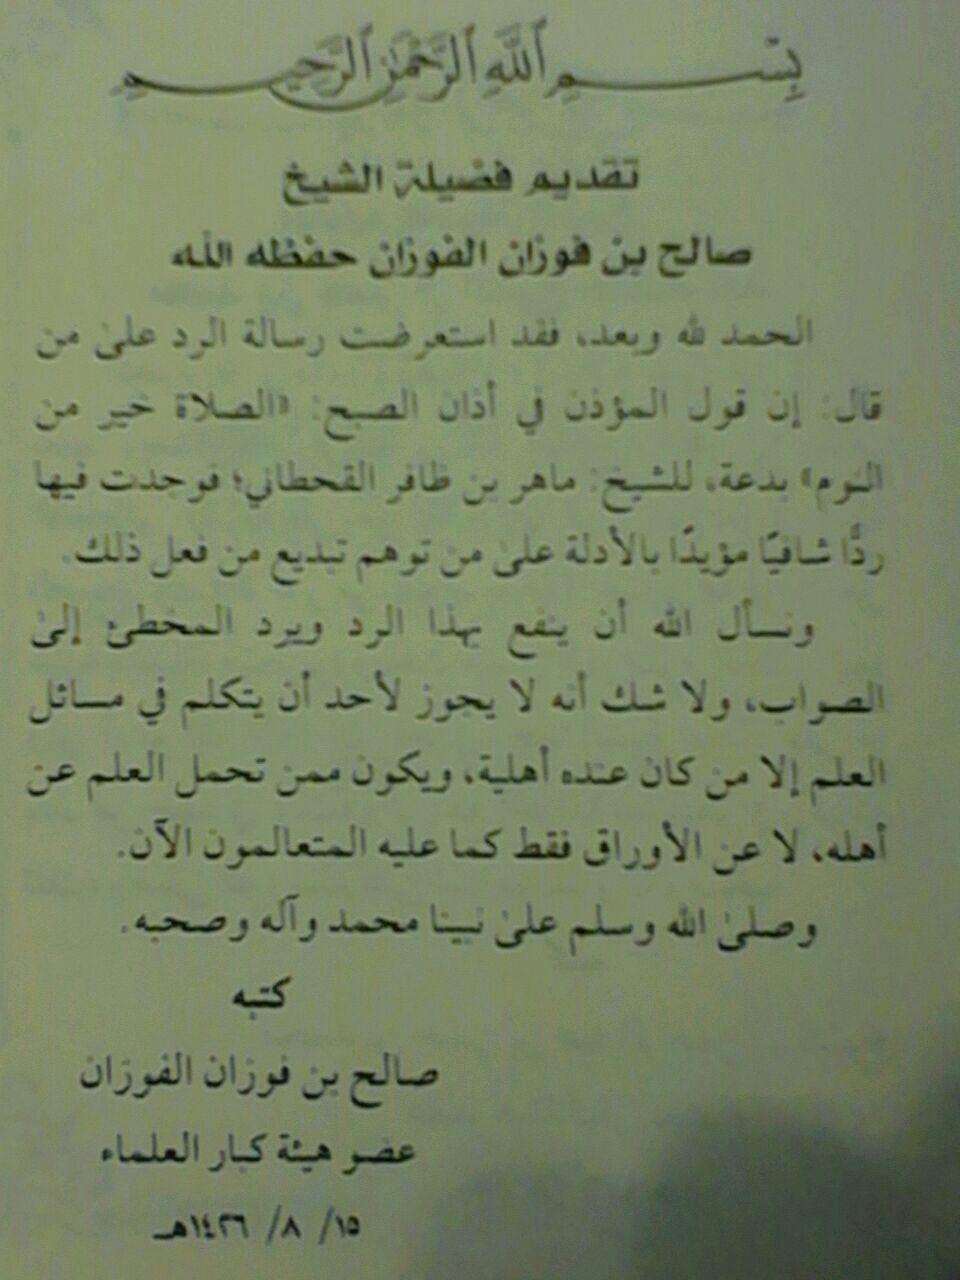 بِسْمِ ٱللَّهِ ٱلرَّحْمَٰنِ ٱلرَّحِيمِ
تقديم فضيلة الشيخ
صالح بن فوزان الفوزان حفظه الله
الحمد لله وبعد، فقد استعرضت رسالة الرد علىٰ من
قال: إن قول المؤذن في أذان الصبح: «الصلاة خير من
النوم» بدعة، للشيخ: ماهر بن ظافر القحطاني؛ فوجدت فيها
ردًّا شافيًا مؤيدًا بالأدلة علىٰ من توهم تبديع من فعل ذلك.
ونسأل الله أن ينفع بهذا الرد ويرد المخطئ إلىٰ
الصواب، ولا شك أنه لا يجوز لأحد أن يتكلم في مسائل
العلم إلا من كان عنده أهلية، ويكون ممن تحمل العلم عن
أهله، لا عن الأوراق فقط كما عليه المتعالمون الآن.
وصلىٰ الله وسلم علىٰ نبينا محمد وآله وصحبه.
كتبه
صالح بن فوزان الفوزان
عضو هيئة كبار العلماء
١٥/ ٨/ ١٤٢٦هـ